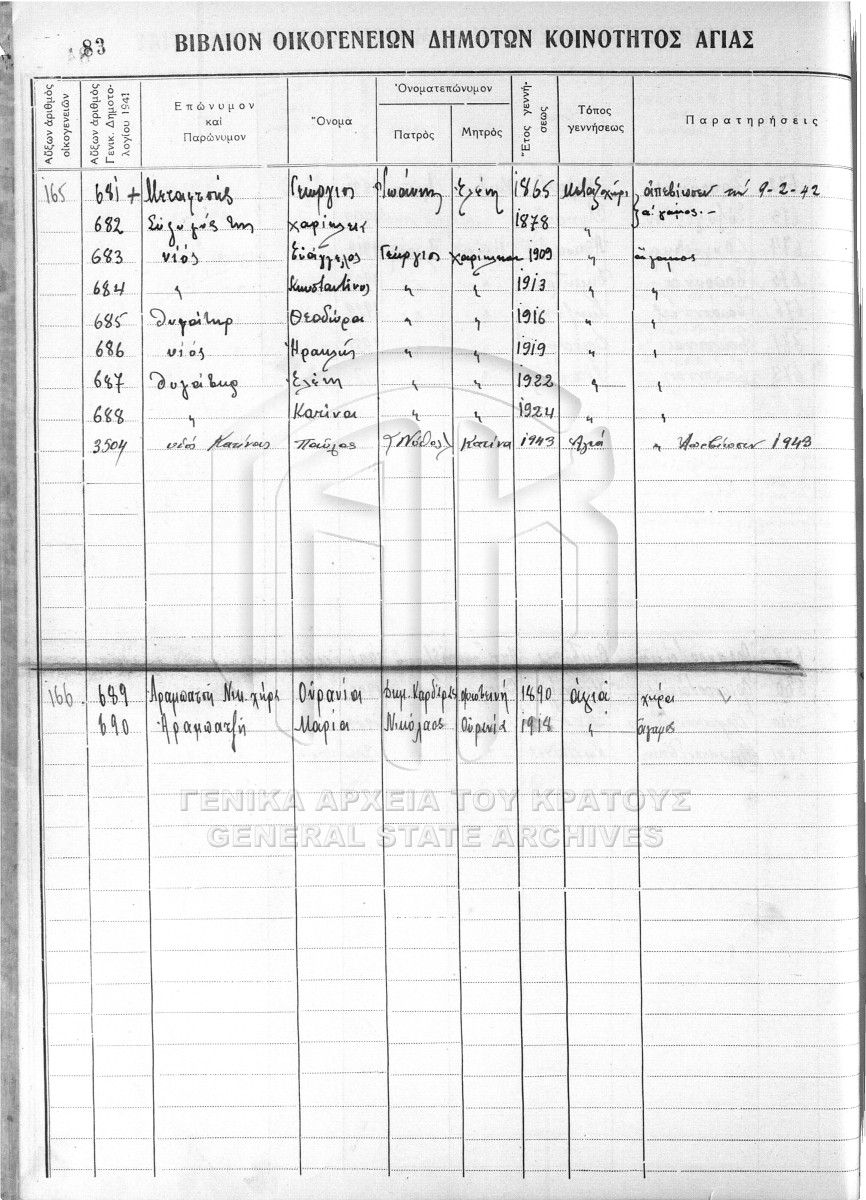 83 ΒΙΒΛΙΟΝ ΟΙΚΟΓΕΝΕΙΩΝ ΔΗΜΟΤΩΝ ΚΟΙΝΟΤΗΤΟΣ ΑΓΙΑΣ
Αὔξων ἀριθμὸς οἰκογενειῶν
Αὔξων ἀριθμὸς Γενικ. Δημοτολογίου 1941
Ἐπώνυμον καὶ Παρώνυμον
Ὄνομα
Ὀνοματεπώνυμον
Πατρὸς
Μητρὸς
Ἔτος γεννήσεως
Τόπος γεννήσεως
Παρατηρήσεις
165 681 + Γεώργιος Ἰωάννη Ἑλένη 1865 Μεταξοχώρι ἀπεβίωσεν τὴν 9-2-42
682 Σύζυγός της 1878 〃 ἄγαμος.-
683 υἱός Εὐάγγελος Γεώργιος 1909 〃 ἄγαμος
684 〃 Κωνσταντῖνος 〃 〃 1913 〃 〃
685 θυγάτηρ Θεοδώρα 〃 〃 1916 〃 〃
686 υἱός Ἡρακλῆς 〃 〃 1919 〃 〃
687 θυγάτηρ Ἑλένη 〃 〃 1922 〃 〃
688 〃 Κατίνα 〃 〃 1924 〃 〃
3504 υἱὸς Κατίνας Παῦλος Κατίνα 1943 Ἁγιά 〃 Ἀπεβίωσεν 1943
166. 689 Ἀραμπατζῆ Νικ. χήρα Οὐρανία Δημ. Φωτεινή 1890 Ἁγιά χήρα
690 Ἀραμπατζῆ Μαρία Νικόλαος Οὐρανία 1918 〃 ἄγαμος
ΓΕΝΙΚΑ ΑΡΧΕΙΑ ΤΟΥ ΚΡΑΤΟΥΣ
GENERAL STATE ARCHIVES